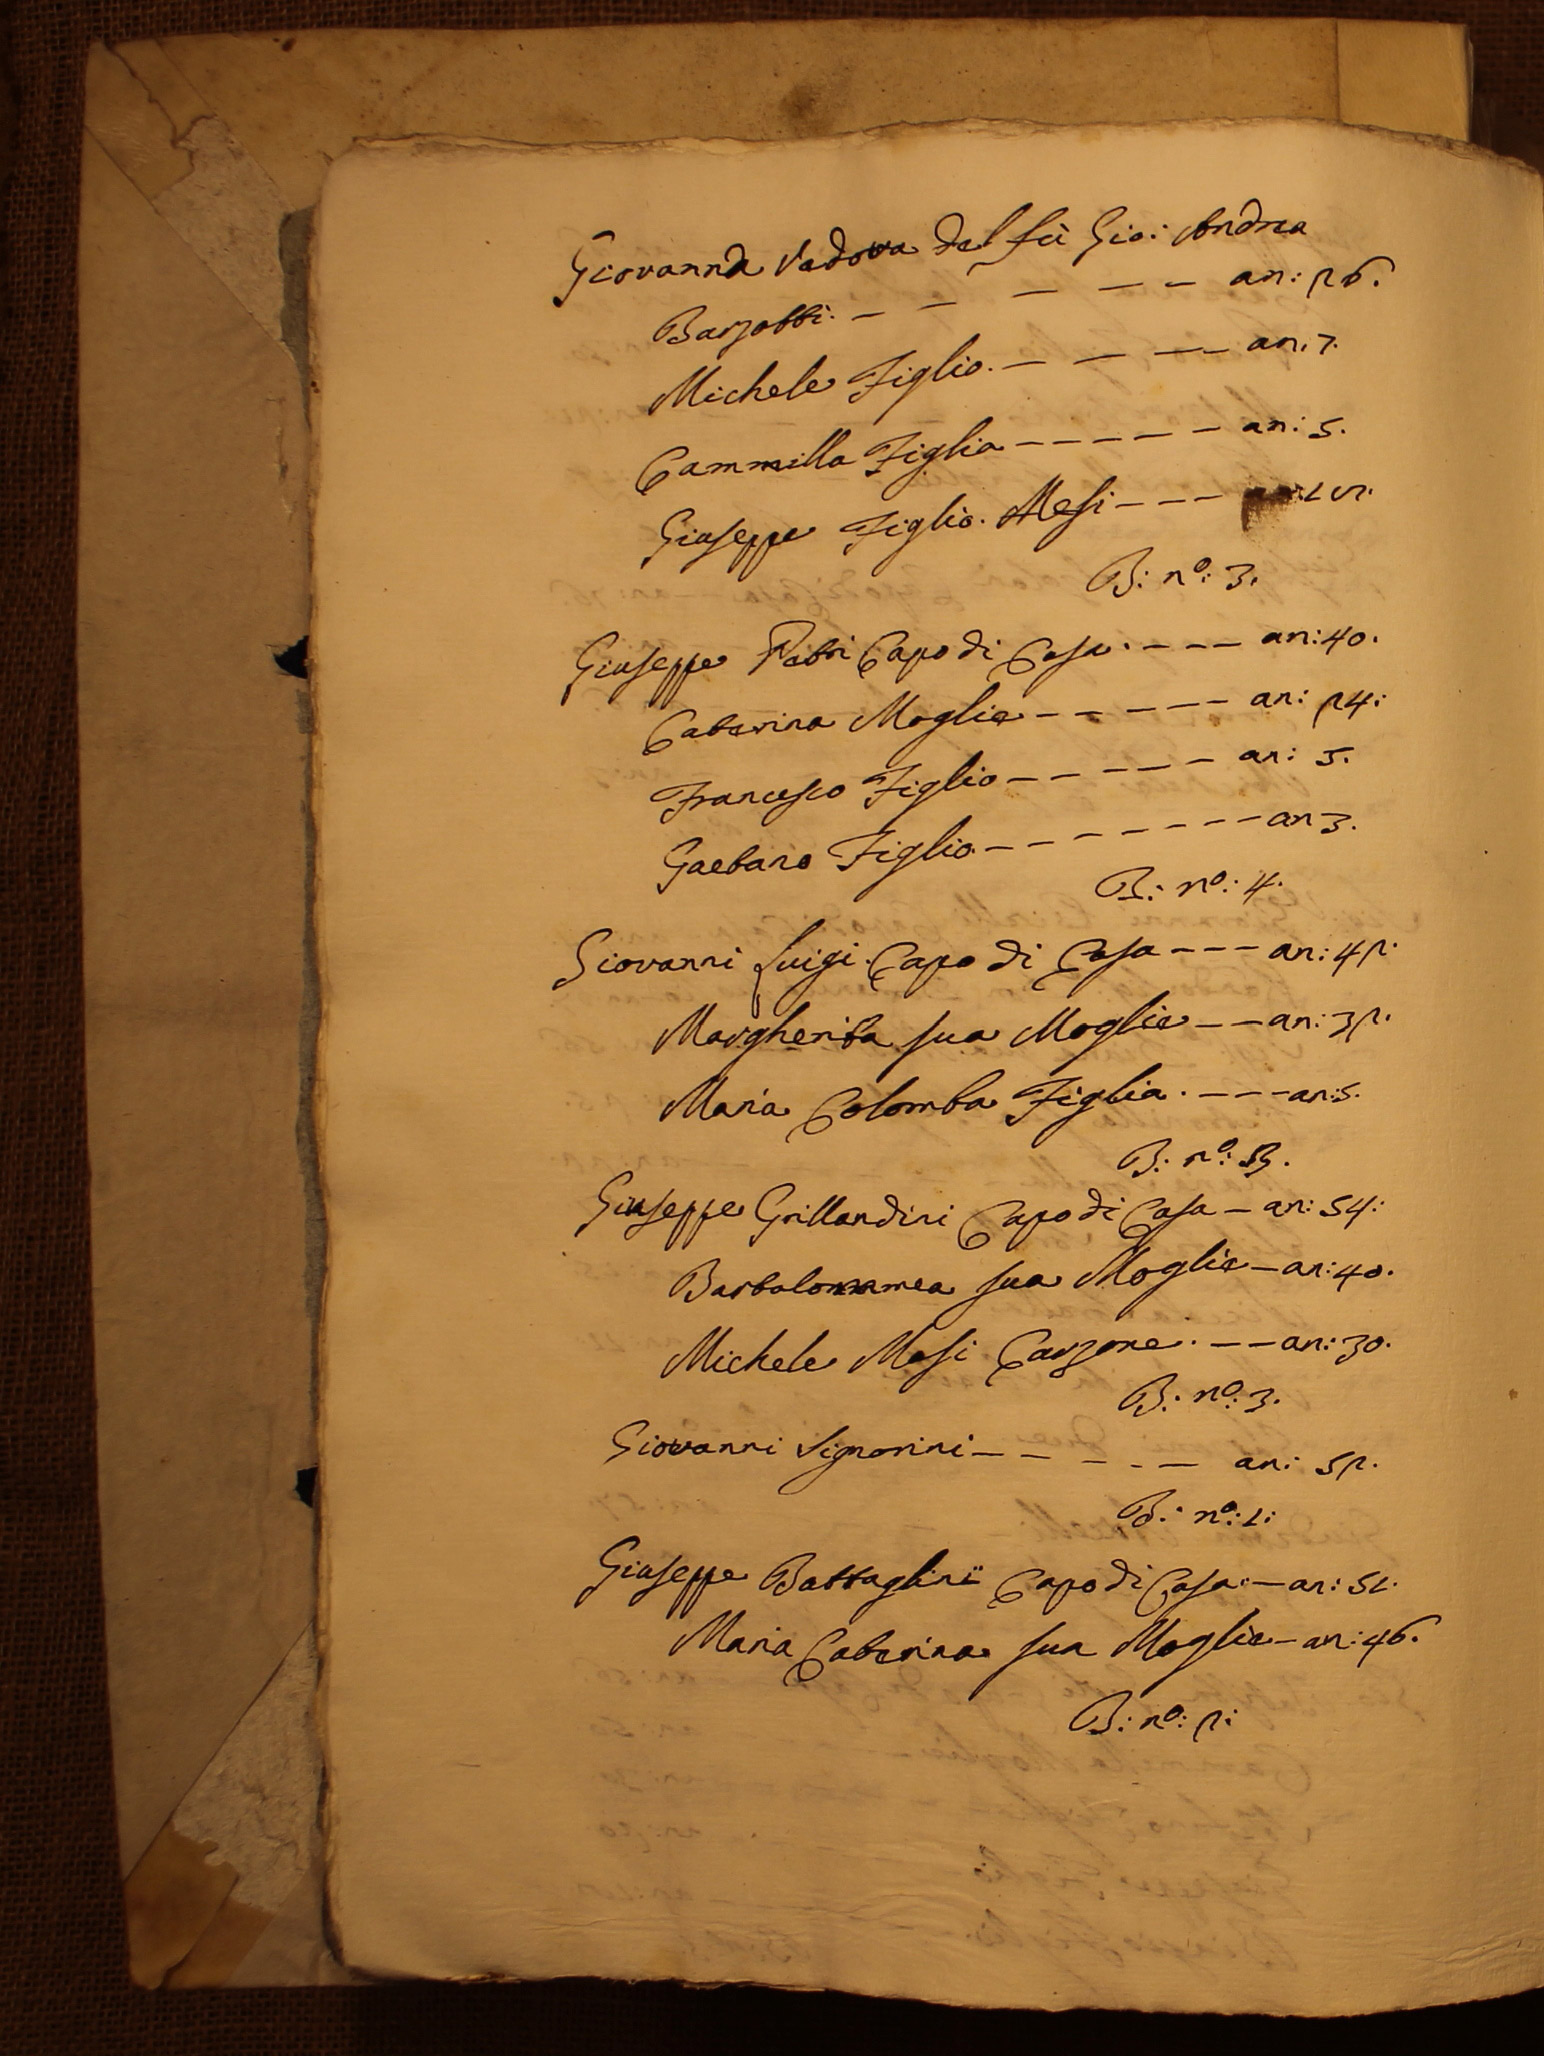 Giovanna Vadova del fù Gio: Andrea
Barzotti. – – – – – an: 26.
Michele Figlio. – – – – an. 7.
Cammilla Figlia – – – – – – an: 5.
Giuseppe Figlio. Mesi – – –
B: nº: 3.
Giuseppe Fabri Capo di Casa. – – – – an: 40.
Caterina Moglie – – – – – – an: 24:
Francesco Figlio – – – – – – an: 5.
Gaetano Figlio – – – – – – – – an 3.
B: nº: 4.
Giovanni Luigi Capo di Casa – – – an: 42.
Margherita sua Moglie – – an: 32.
Maria Colomba Figlia. – – – an: 5.
B: nº: 3.
Giuseppe Grillandini Capo di Casa – an: 54:
Bartolommea sua Moglie – an: 40.
Michele Mesi Garzone. – – an: 30.
B: nº: 3.
Giovanni Signorini – – – – – an: 52.
B: nº: 1:
Giuseppe Battaglini Capo di Casa: – an: 51.
Maria Caterina sua Moglie – an: 46.
B: nº: 2: